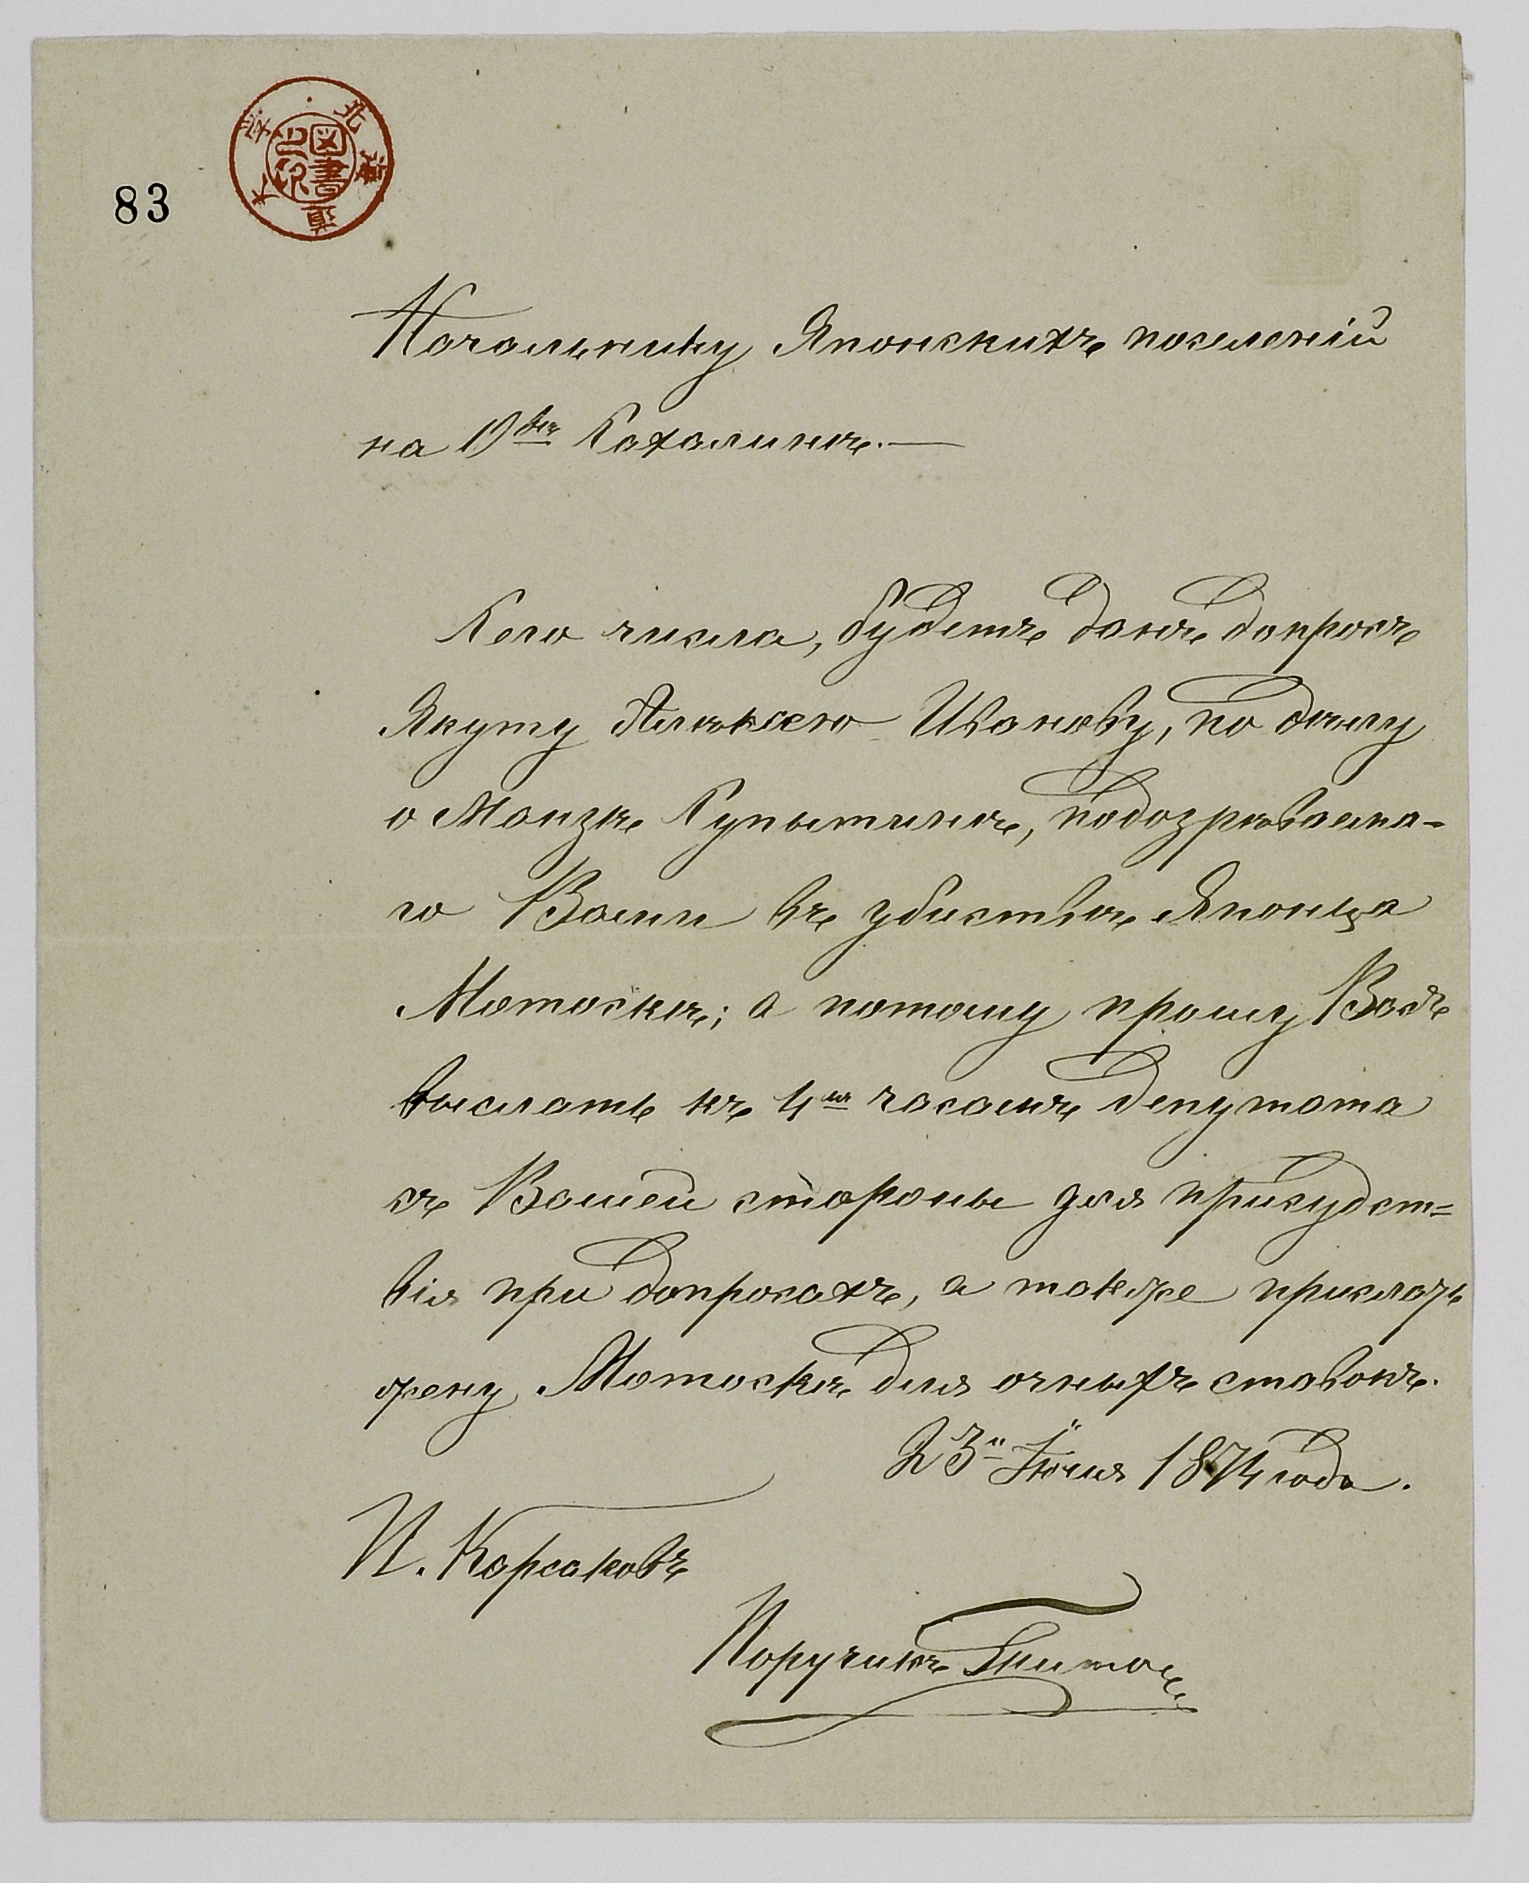 83
北海道大學
図書之印
Начальнику Японскихъ поселенiй
на О-вѣ Сахалинѣ.—
Сего числа, будетъ данъ допросъ
Якуту Алексѣю Иванову, по дѣлу
о Манзѣ Купытинѣ, подозрѣваема-
го Вами въ убиствѣ Японца
Мотоскѣ; а потому прошу Васъ
выслать къ 4мъ часамъ депутата
съ Вашей стороны для присудст=
вiя при допросахъ, а также прислать
жену Мотоскѣ для очныхъ ставокъ.
23го Iюня 1874 года.
П. Корсаковъ
Поручикъ